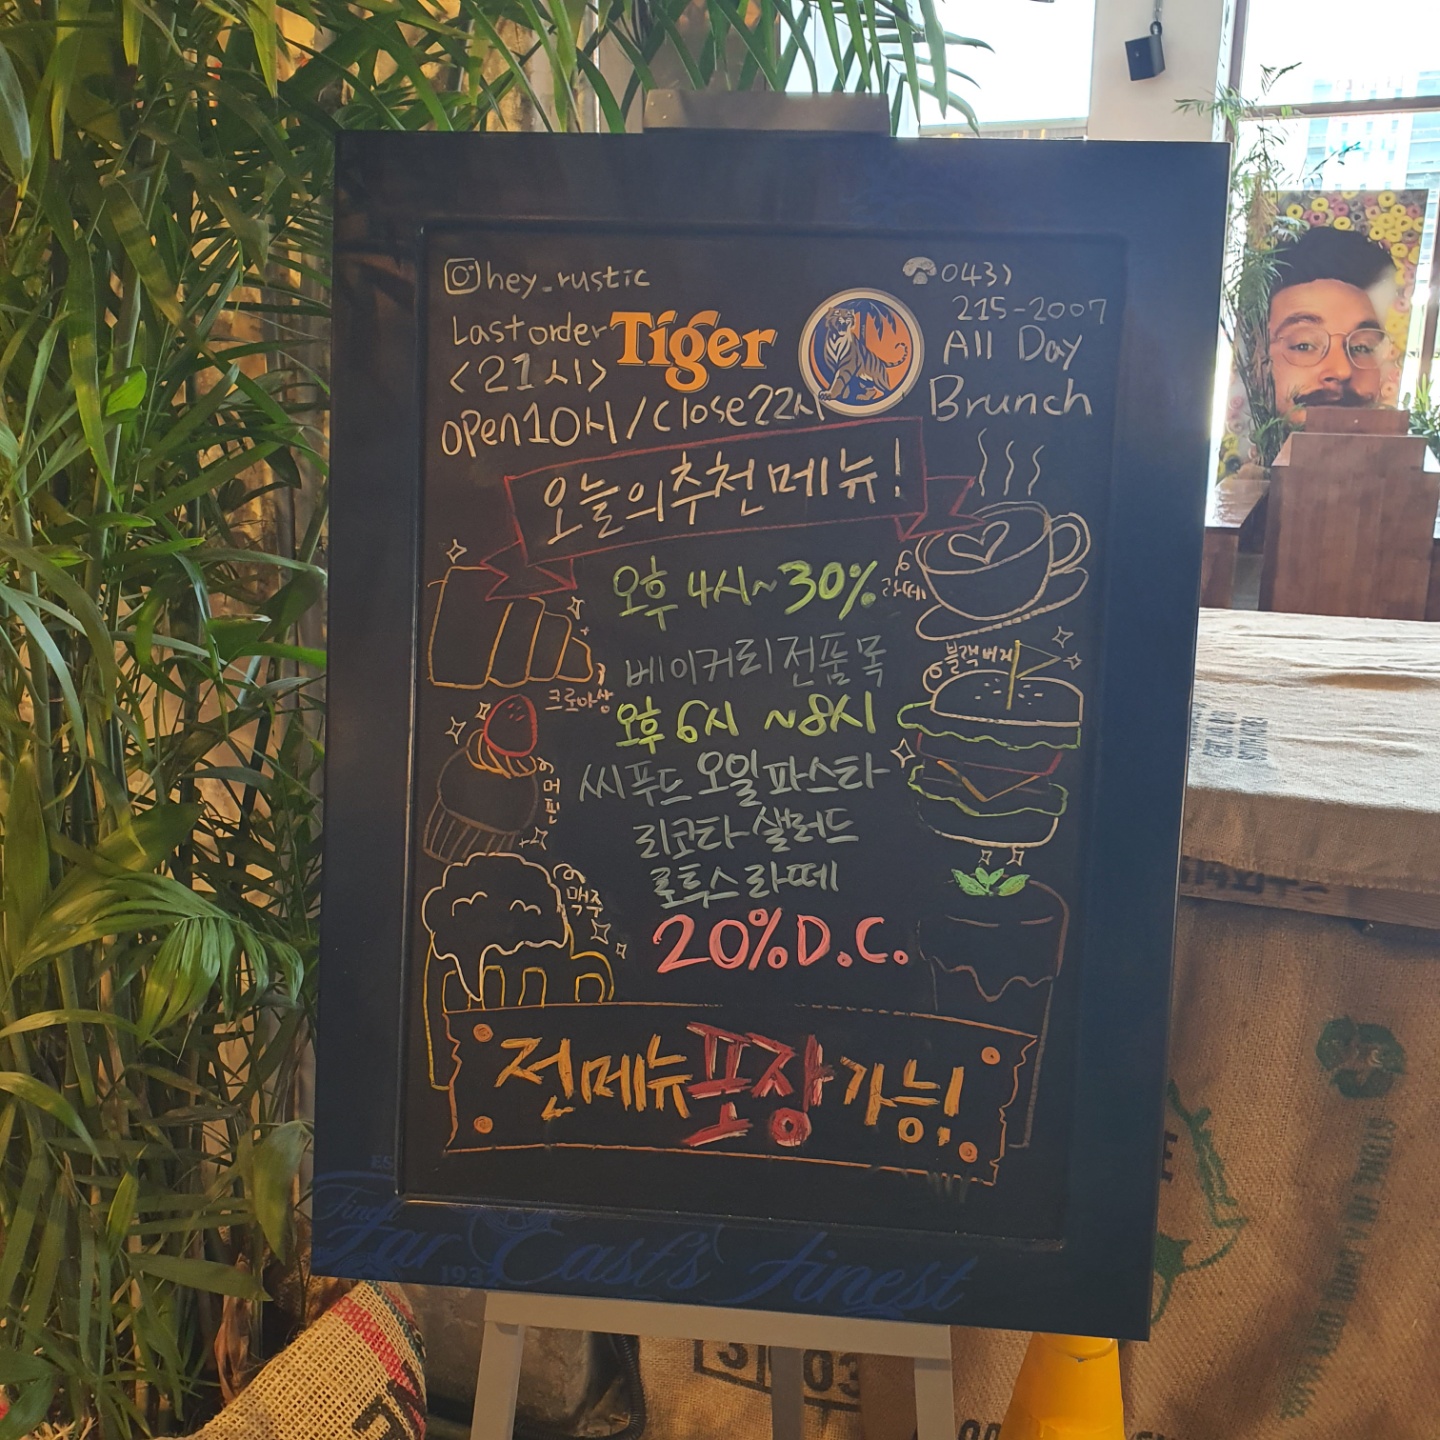 hey_rustic
043)
215-2007
Last order
<21시>
Tiger
All Day
Brunch
open10시/close22시
오늘의추천메뉴!
오후 4시~30%
라떼
베이커리전품목
크로아상
블랙버거
오후 6시 ~8시
머핀
씨푸드 오일파스타
리코타 샐러드
로투스라떼
맥주
20% D.C.
전메뉴포장가능!
Far East's Finest